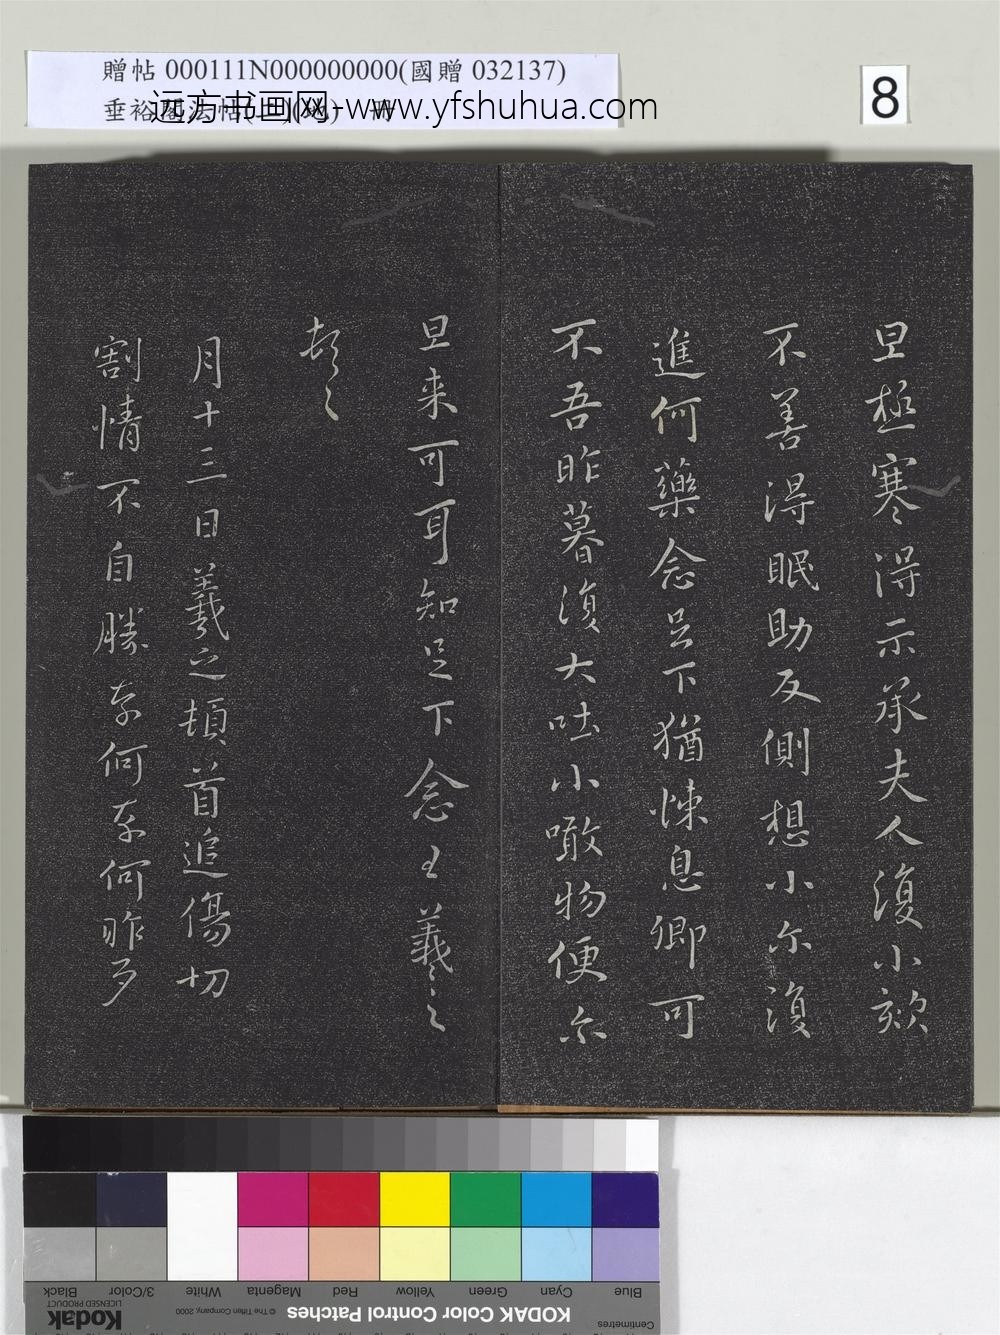 贈帖 000111N000000000(國贈 032137)
垂裕
远方书画网-www.yfshuhua.com
冊
8
旦極寒得示承夫人復小欬
不善得眠助反側想小尒復
進何藥念足下猶悚息卿可
不吾昨暮復大吐小噉物便尒
旦来可耳知足下念王羲之
頓首
月十三日羲之頓首追傷切
割情不自勝奈何奈何昨夕
Blue
Cyan
Green
Yellow
Red
Magenta
White
3/Color
Black
Centimetres
KODAK Color Control Patches
© The Tiffen Company, 2000
Kodak
LICENSED PRODUCT